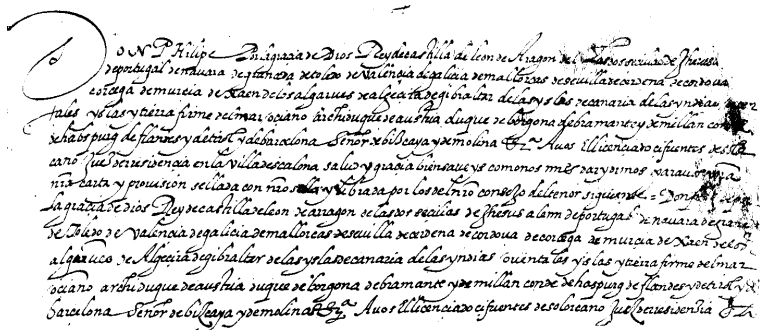 DON Philipe Por la gracia de Dios Rey de castilla de leon de Aragon de las dos secilias de Jherusa
de portugal de navara de granada de toledo de valençia de galicia de mallorcas de sevilla de cerdena de cordova
corcega de murcia de Xaen de los algarves de algecira de gibraltar de las yslas de canaria de las yndias orien
tales yslas y tierra firme del mar oçiano archiduque de austria duque de borgona de bramante y de millan conde
de haspurg de flandes y de tirol y de barcelona Señor de bizcaya y de molina &ra A vos El licenciado cifuentes de
cano Juez de residencia en la villa de escalona salud y gracia bien saveys como nos mandamos dar y dimos para vos una
nra carta y provision sellada con nro sello y librada por los del nro consejo del tenor siguiente = Don felipe por
la gracia de dios Rey de castilla de leon de aragon de las dos secilias de Jherusalem de portugal de navara de grana
de Toledo de Valençia de galicia de mallorcas de sevilla de cerdena de cordova de corcega de murcia de Xaen de los
algarves de Algecira de gibraltar de las yslas de canaria de las yndias orientales yslas y tierra firme del mar
oçiano archiduque de austria duque de borgona de bramante y de millan conde de haspurg de flandes y de tirol y
barcelona Señor de bizcaya y de molina &ra A vos El licenciado cifuentes de solorcano Juez de residencia